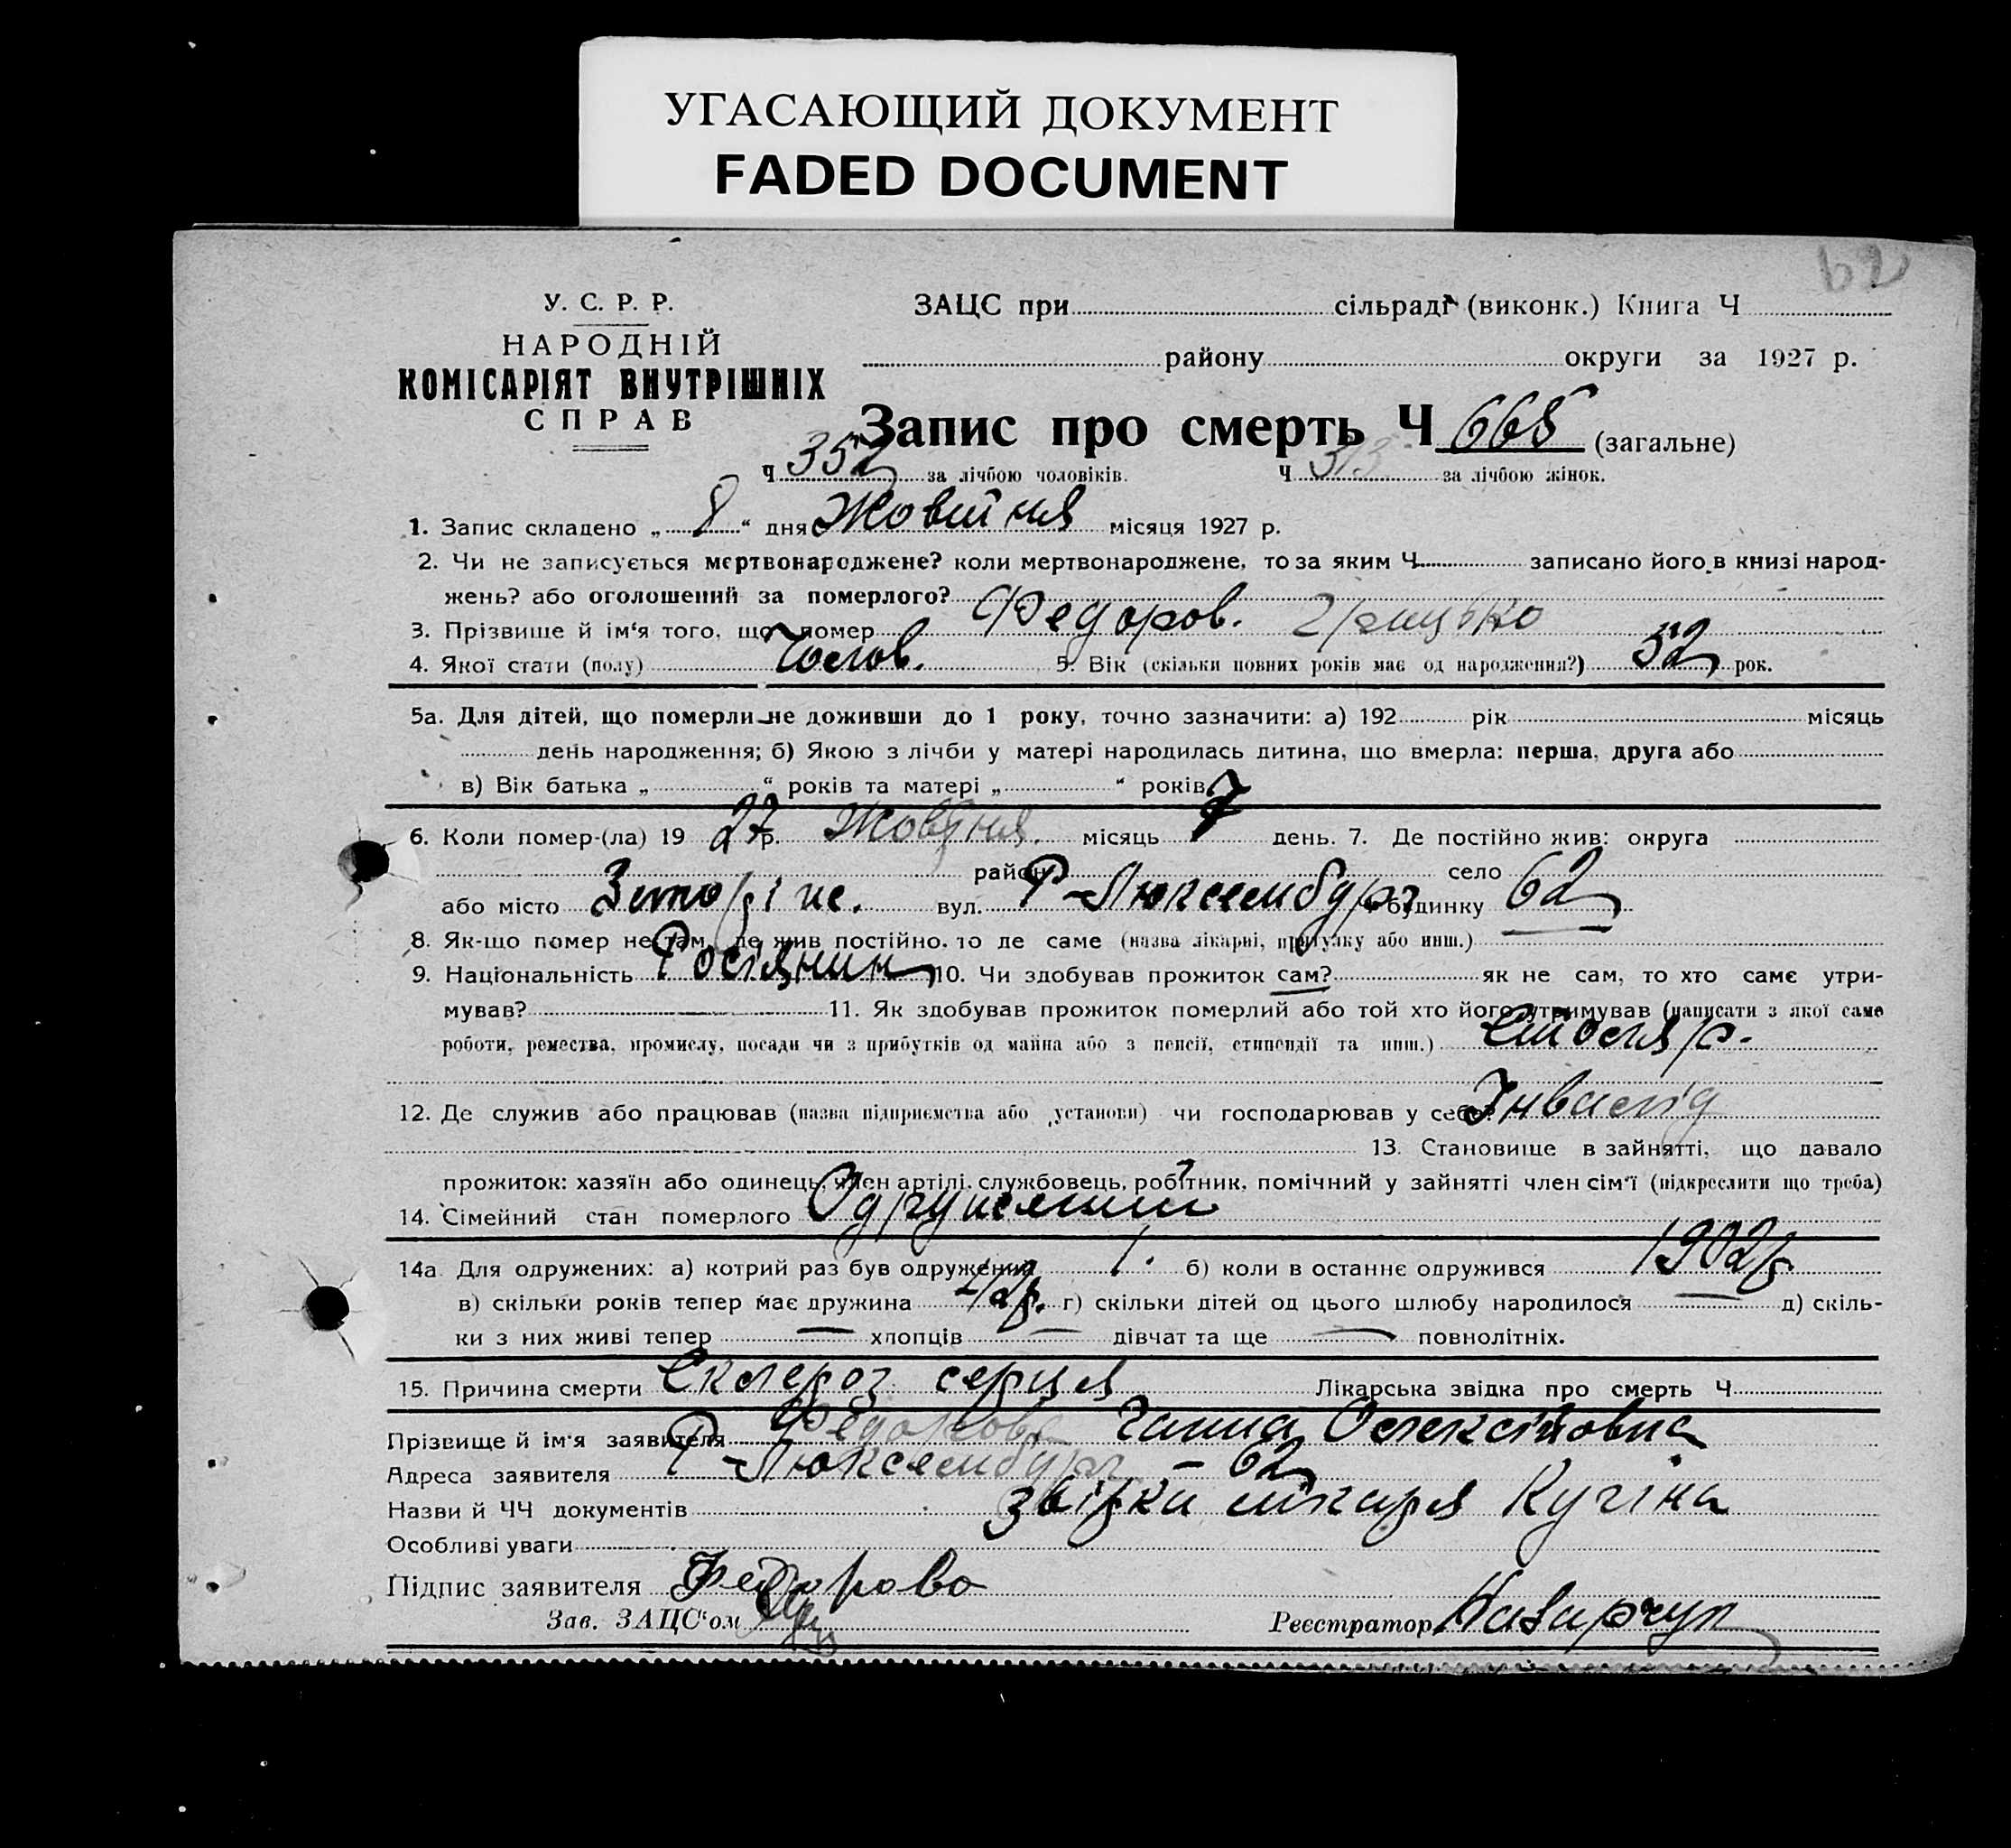 УГАСАЮЩИЙ ДОКУМЕНТ
FADED DOCUMENT
62
У. С. Р. Р.
НАРОДНІЙ
КОМІСАРІЯТ ВНУТРІШНІХ
СПРАВ
ЗАЦС при сільраді (виконк.) Книга Ч
району округи за 1927 р.
Запис про смерть Ч 665 (загальне)
Ч 352 за лічбою чоловіків. Ч 313 за лічбою жінок.
1. Запис складено „ 8 “ дня Жовтня місяця 1927 р.
2. Чи не записується мертвонароджене? коли мертвонароджене, то за яким Ч записано його в книзі народ-
жень? або оголошений за померлого?
3. Прізвище й ім‘я того, що помер Федоров. Грицько
4. Якої стати (полу) Чолов. 5. Вік (скільки повних років має од народження?) 52 рок.
5а. Для дітей, що померли не доживши до 1 року, точно зазначити: а) 192 рік місяць
день народження; б) Якою з лічби у матері народилась дитина, що вмерла: перша, друга або
в) Вік батька „ “ років та матері „ “ років
6. Коли помер-(ла) 19 27 р. Жовтня. місяць 7 день. 7. Де постійно жив: округа
район село
або місто вул. Р-Люксембург будинку 62
8. Як-що помер не там, де жив постійно. то де саме (назва лікарні, притулку або инш.)
9. Національність Росіянин 10. Чи здобував прожиток сам? як не сам, то хто саме утри-
мував? 11. Як здобував прожиток померлий або той хто його утримував (написати з якої саме
роботи, ремества, промислу, посади чи з прибутків од майна або з пенсії, стипендії та инш.) Столяр.
12. Де служив або працював (назва підприємства або установи) чи господарював у себе? Інвалід
13. Становище в зайнятті, що давало
прожиток: хазяїн або одинець, член артілі, службовець, робітник, помічний у зайнятті член сім‘ї (підкреслити що треба)
14. Сімейний стан померлого Одружений
14а. Для одружених: а) котрий раз був одружений 1. б) коли в останнє одружився 1902 р
в) скільки років тепер має дружина г) скільки дітей од цього шлюбу народилося — д) скіль-
ки з них живі тепер — хлопців — дівчат та ще — повнолітніх.
15. Причина смерти Склероз серця Лікарська звідка про смерть Ч
Прізвище й ім‘я заявителя Федорова Ганна Олексіївна
Адреса заявителя Р-Люксембург – 62
Назви й ЧЧ документів звідка лікаря Кугіна
Особливі уваги
Підпис заявителя Федорова
Зав. ЗАЦС‘ом
Реєстратор